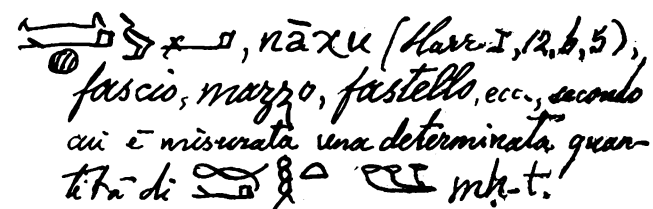 , nāχu (Harr. I, 12, b, 5),
fascio, mazzo, fastello, ecc., secondo
cui è misurata una determinata quan-
tità di mḥ-t.